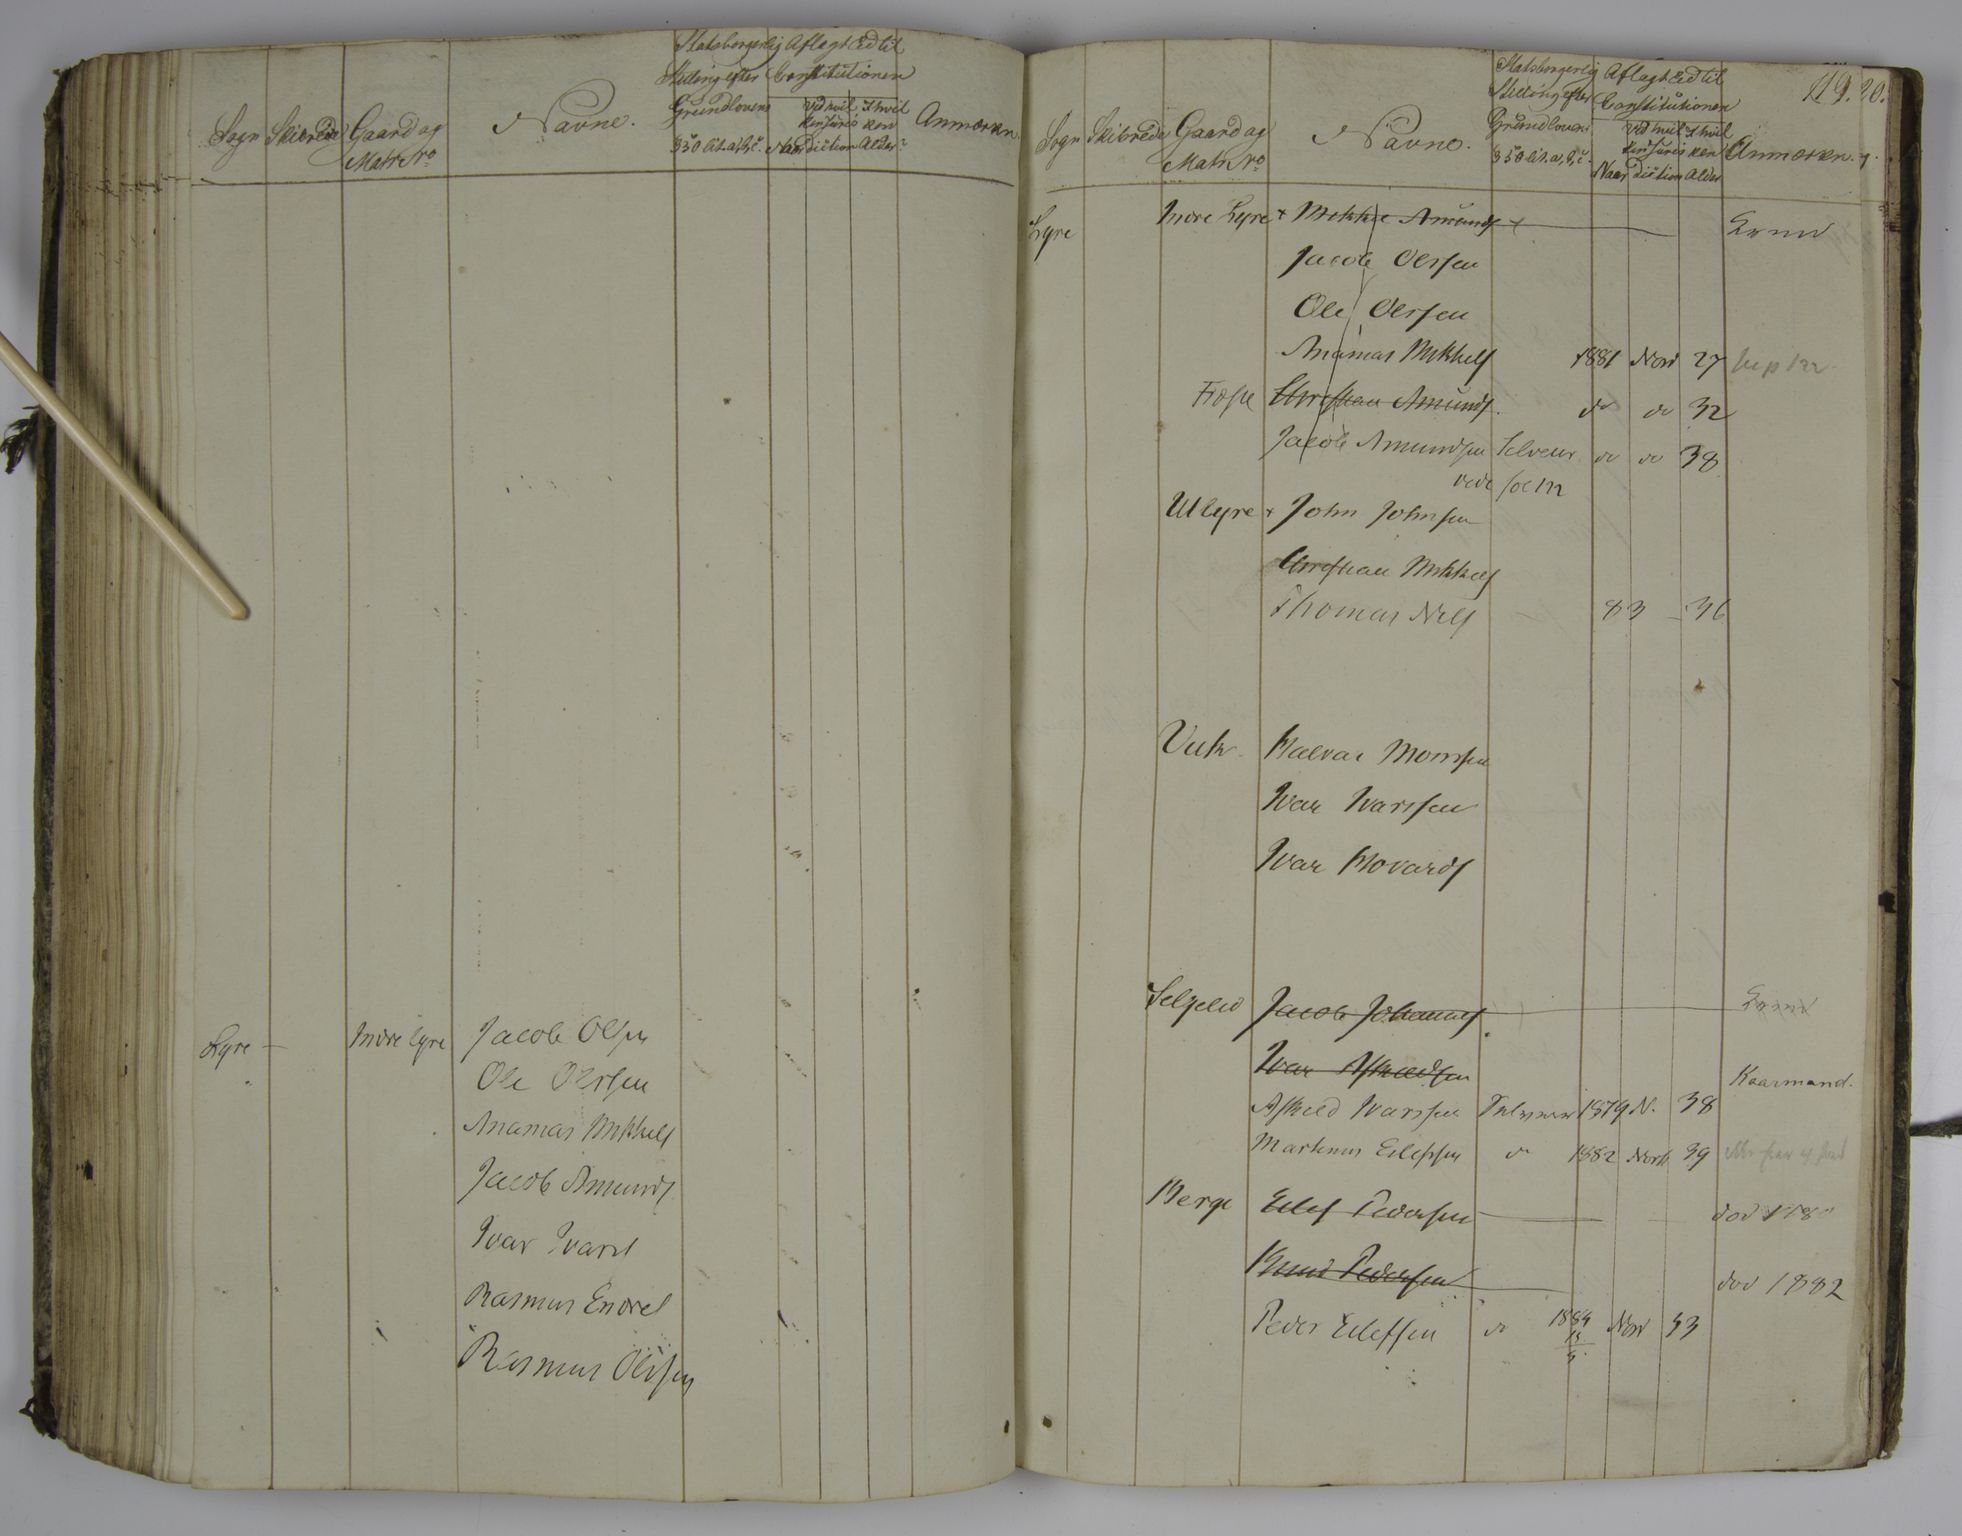 Sogn Skibrede Gaard og Matr No Navne. Statsborgerlig Stilling efter Grundlovens § 50 lit. a, b, c. Aflagt Ed til Constitutionen Naar Ved hvilken Jurisdiction I hvilken Alder? Anmærkn.
Lyre — Indre Lyre Jacob Olsen
Ole Olsen
Anamas Mikkels
Jacob Amunds
Ivar Ivars
Rasmus Endres
Rasmus Olssen
119. 20.
Sogn Skibrede Gaard og Matr No Navne. Statsborgerlig Stilling efter Grundlovens § 50 lit. a, b, c. Aflagt Ed til Constitutionen Naar Ved hvilken Jurisdiction I hvilken Alder Anmærkn.
Lyre Indre Lyre + Mikkel Amunds
Jacob Olssen
Ole Olssen
Anamas Mikkels 1881 Nov 27
Christian Amunds. do do 32
Jacob Amundsen Selveier do do 38
vide
Utlyre + John Johnsen
Christian Mikkels
Thomas Nils — 83 — 36
Vik Halvar Monssen
Ivar Ivarssen
Ivar Hovards
Selgelid Jacob Johannes
Ivar Askeldsen Kaarmand.
Askeld Ivarssen 1879 N. 38
Markus Eilefsen do 1882 Nov 39
Berge Eilef Pedersen — død 188
Knud Pedersen — død 1882
Peder Eilefsen do 1884 Nov 33